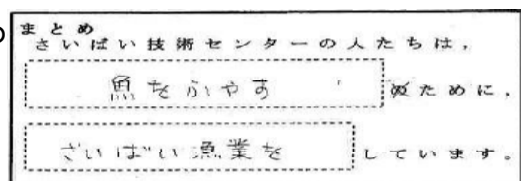 まとめ
さいばい技術センターの人たちは，
魚をふやす ために，
ざいばい漁業を しています。